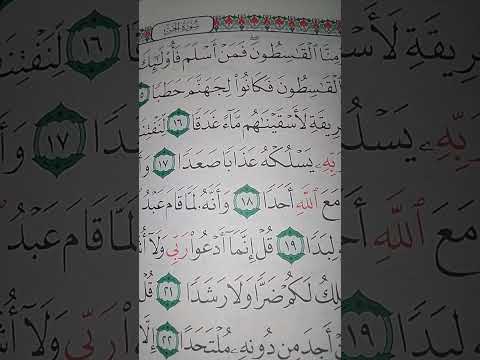 سُورَةُ الجِنّ
مِنَّا ٱلْقَـٰسِطُونَ ۖ فَمَنْ أَسْلَمَ فَأُو۟لَـٰٓئِكَ
ٱلْقَـٰسِطُونَ فَكَانُوا۟ لِجَهَنَّمَ حَطَبًا
لَأَسْقَيْنَـٰهُم مَّآءً غَدَقًا ١٦
يَسْلُكْهُ عَذَابًا صَعَدًا ١٧
مَعَ ٱللَّهِ أَحَدًا ١٨ وَأَنَّهُۥ لَمَّا قَامَ عَبْدُ
لِبَدًا ١٩ قُلْ إِنَّمَآ أَدْعُوا۟ رَبِّى وَلَآ
لَكُمْ ضَرًّا وَلَا رَشَدًا ٢١ قُلْ
أَحَدٌ مِن دُونِهِۦ مُلْتَحَدًا ٢٢ إِلَّا